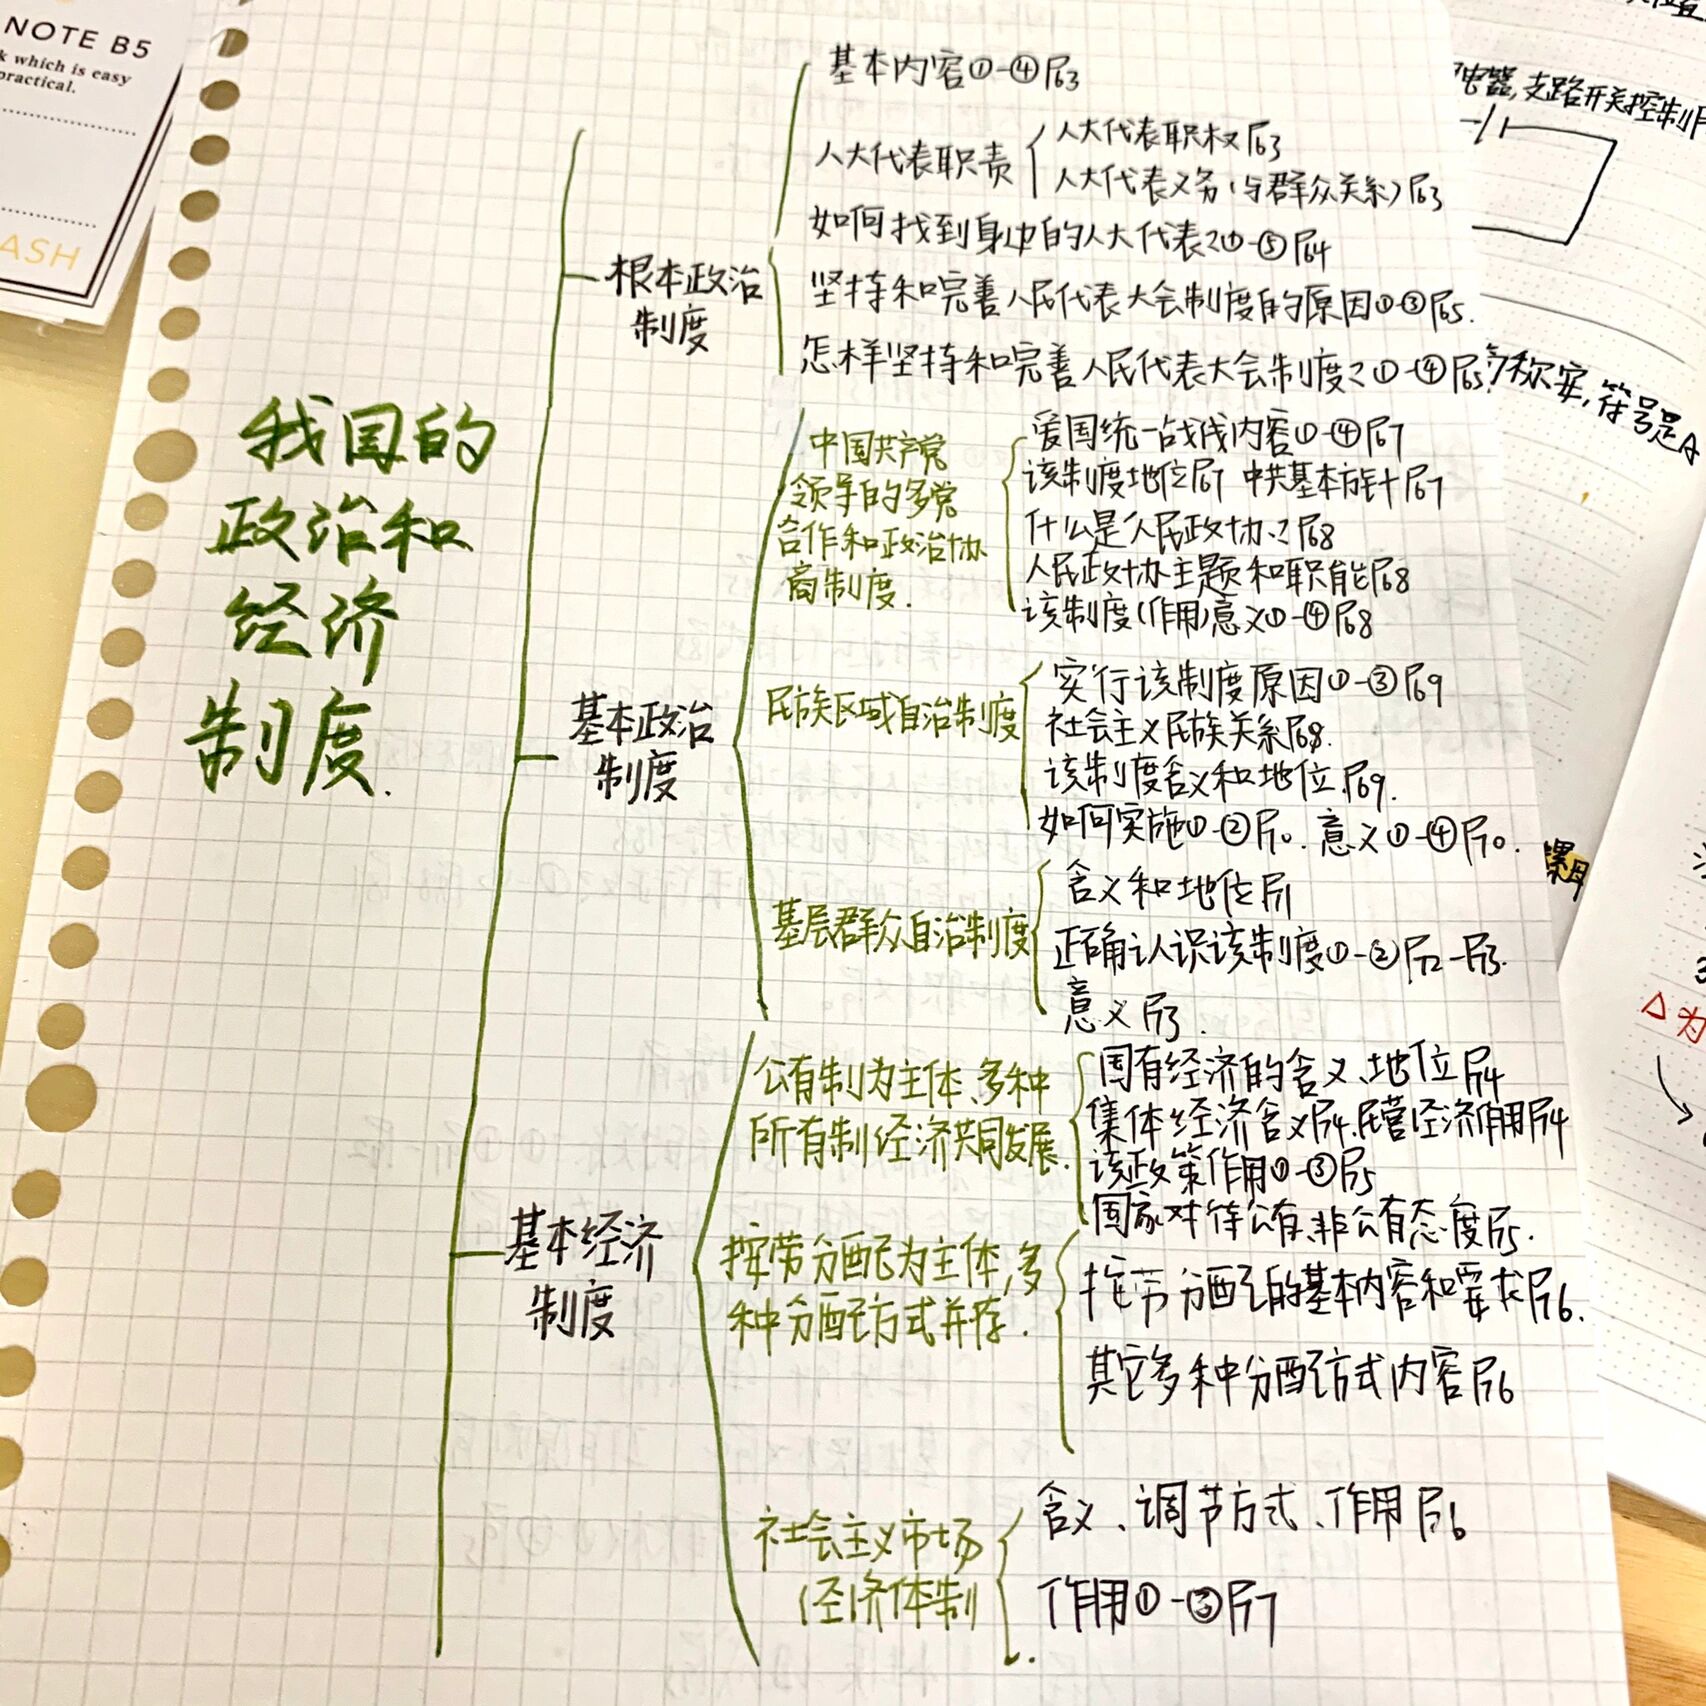 NOTE B5
which is easy
practical.
ASH
我国的
政治和
经济
制度.
根本政治
制度
基本内容①-④P63
人大代表职责
人大代表职权P63
人大代表义务(与群众关系)P63
如何找到身边的人大代表?①-⑤P64
坚持和完善人民代表大会制度的原因①-③P65.
怎样坚持和完善人民代表大会制度?①-④P65.
基本政治
制度
中国共产党
领导的多党
合作和政治协
商制度.
爱国统一战线内容①-④P67
该制度地位P67 中共基本方针P67
什么是人民政协?P68
人民政协主题和职能P68
该制度(作用)意义①-④P68
民族区域自治制度
实行该制度原因①-③P69
社会主义民族关系P68.
该制度含义和地位P69.
如何实施①-②P70.意义①-④P70.
基层群众自治制度
含义和地位P71
正确认识该制度①-②P72-P73.
意义P73.
基本经济
制度
公有制为主体、多种
所有制经济共同发展.
国有经济的含义、地位P74
集体经济含义P74.民营经济作用P74
该政策作用①-③P75
国家对待公有、非公有态度P75.
按劳分配为主体,多
种分配方式并存.
按劳分配的基本内容和要求P76.
其它多种分配方式内容P76
社会主义市场
经济体制
含义、调节方式、作用P76
作用①-③P77
电器,支路开关控制
称安,符号是A
螺母
△为